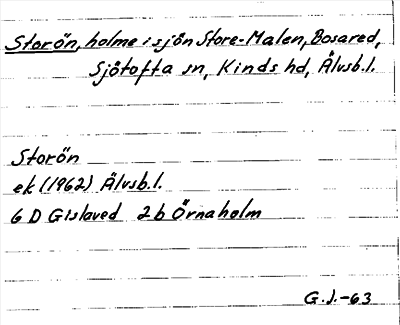 Storön, holme i sjön Store-Malen, Bosared,
Sjötofta sn, Kinds hd, Älvsb.l.
Storön
ek (1962) Älvsb.l.
6 D Gislaved 2b Örnaholm
G.J.-63